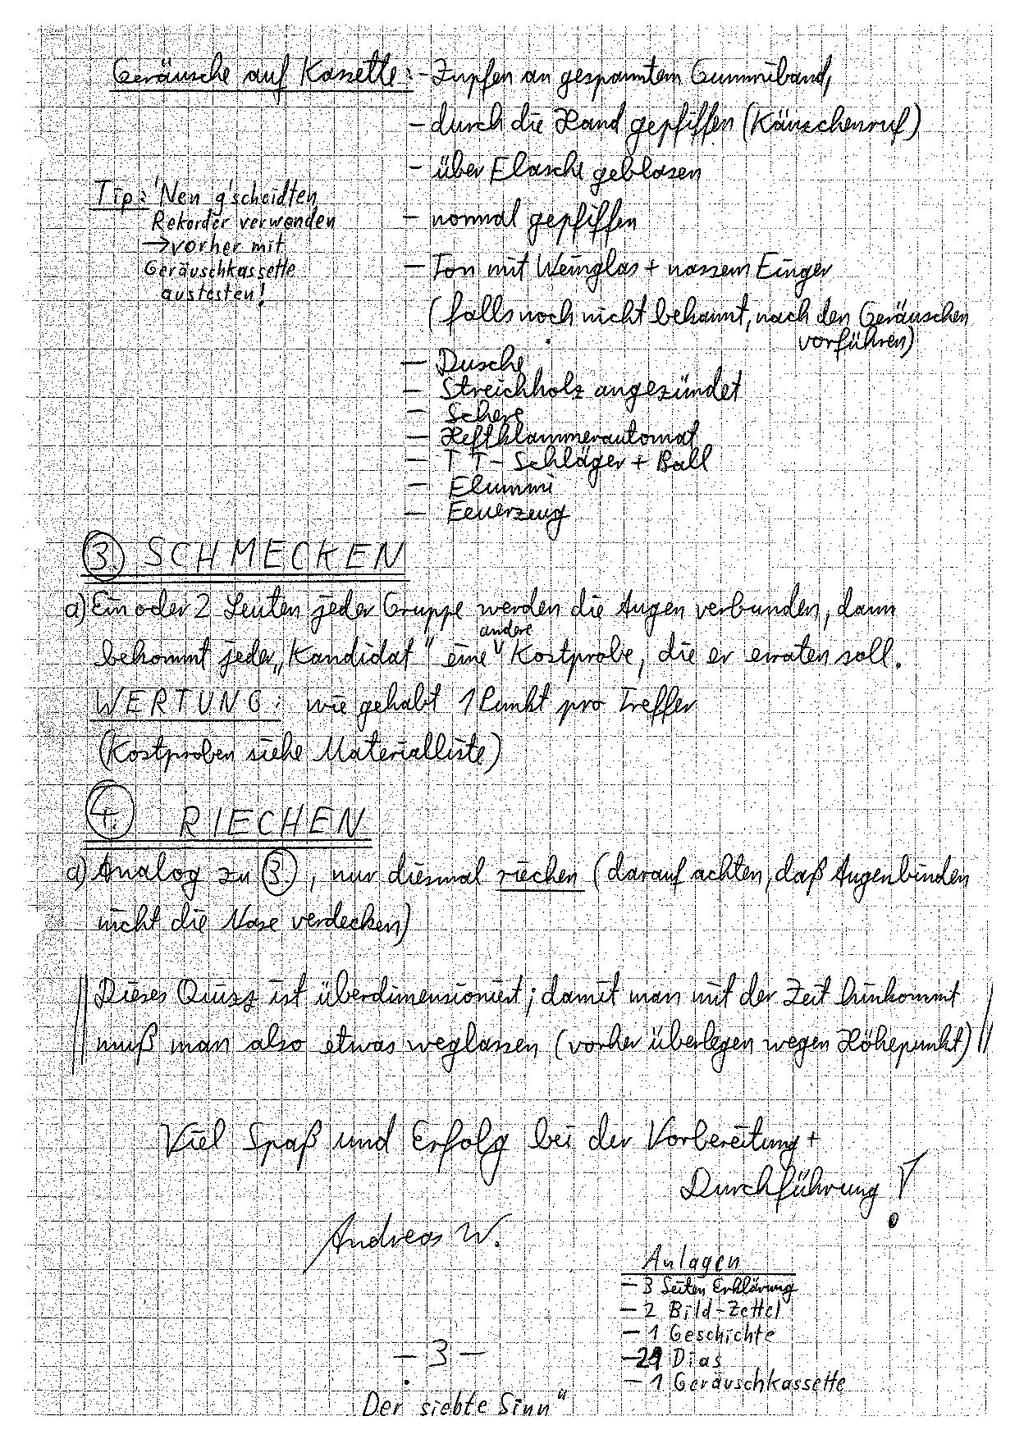 Geräusche auf Kassette: - Zupfen an gespanntem Gummiband,
- durch die Hand gepfiffen (Käuzchenruf)
- über Flasche geblasen
Tip: 'Nen g'scheidten
Rekorder verwenden
→ vorher mit
Geräuschkassette
austesten!
- normal gepfiffen
- Ton mit Weinglas + nassem Finger
(falls noch nicht bekannt, nach den Geräuschen
vorführen)
- Dusche
- Streichholz angezündet
- Schere
- Heftklammerautomat
- TT-Schläger + Ball
- Flummi
- Feuerzeug
3. SCHMECKEN
a) Ein oder 2 Leuten jeder Gruppe werden die Augen verbunden, dann
andere
bekommt jeder „Kandidat" eine Kostprobe, die er erraten soll.
WERTUNG: wie gehabt 1 Punkt pro Treffer
(Kostproben siehe Materialliste)
4. RIECHEN
a) Analog zu 3., nur diesmal riechen (darauf achten, daß Augenbinden
nicht die Nase verdecken)
Dieses Quizz ist überdimensioniert; damit man mit der Zeit hinkommt
muß man also etwas weglassen (vorher überlegen wegen Höhepunkt)
Viel Spaß und Erfolg bei der Vorbereitung +
Durchführung!
Andreas W.
Anlagen
- 3 Seiten Erklärung
- 2 Bild-Zettel
- 1 Geschichte
- 21 Dias
- 1 Geräuschkassette
- 3 -
Der siebte Sinn"